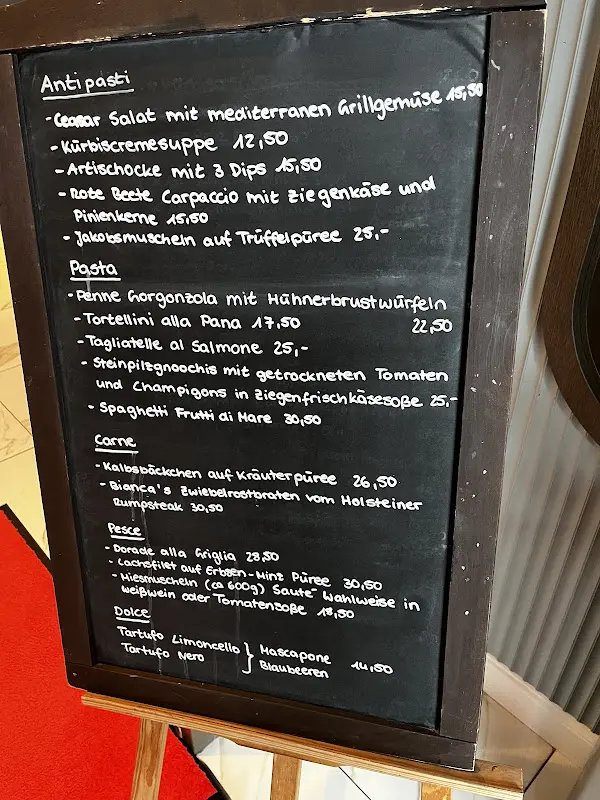 Antipasti
- Ceasar Salat mit mediterranen Grillgemüse 15,50
- Kürbiscremesuppe 12,50
- Artischocke mit 3 Dips 15,50
- Rote Beete Carpaccio mit Ziegenkäse und
Pinienkerne 15,50
- Jakobsmuscheln auf Trüffelpüree 25,-
Pasta
- Penne Gorgonzola mit Hühnerbrustwürfeln
22,50
- Tortellini alla Pana 17,50
- Tagliatelle al Salmone 25,-
- Steinpilzgnoochis mit getrockneten Tomaten
und Champigons in Ziegenfrischkäsesoße 25,-
- Spaghetti Frutti di Mare 30,50
Carne
- Kalbsbäckchen auf Kräuterpüree 26,50
- Bianca's Zwiebelrostbraten vom Holsteiner
Rumpsteak 30,50
Pesce
- Dorade alla Griglia 28,50
- Lachsfilet auf Erbsen-Minz Püree 30,50
- Miesmuscheln (ca 600g) Sauté Wahlweise in
Weißwein oder Tomatensoße 18,50
Dolce
Tartufo Limoncello } Mascapone 14,50
Tartufo Nero Blaubeeren